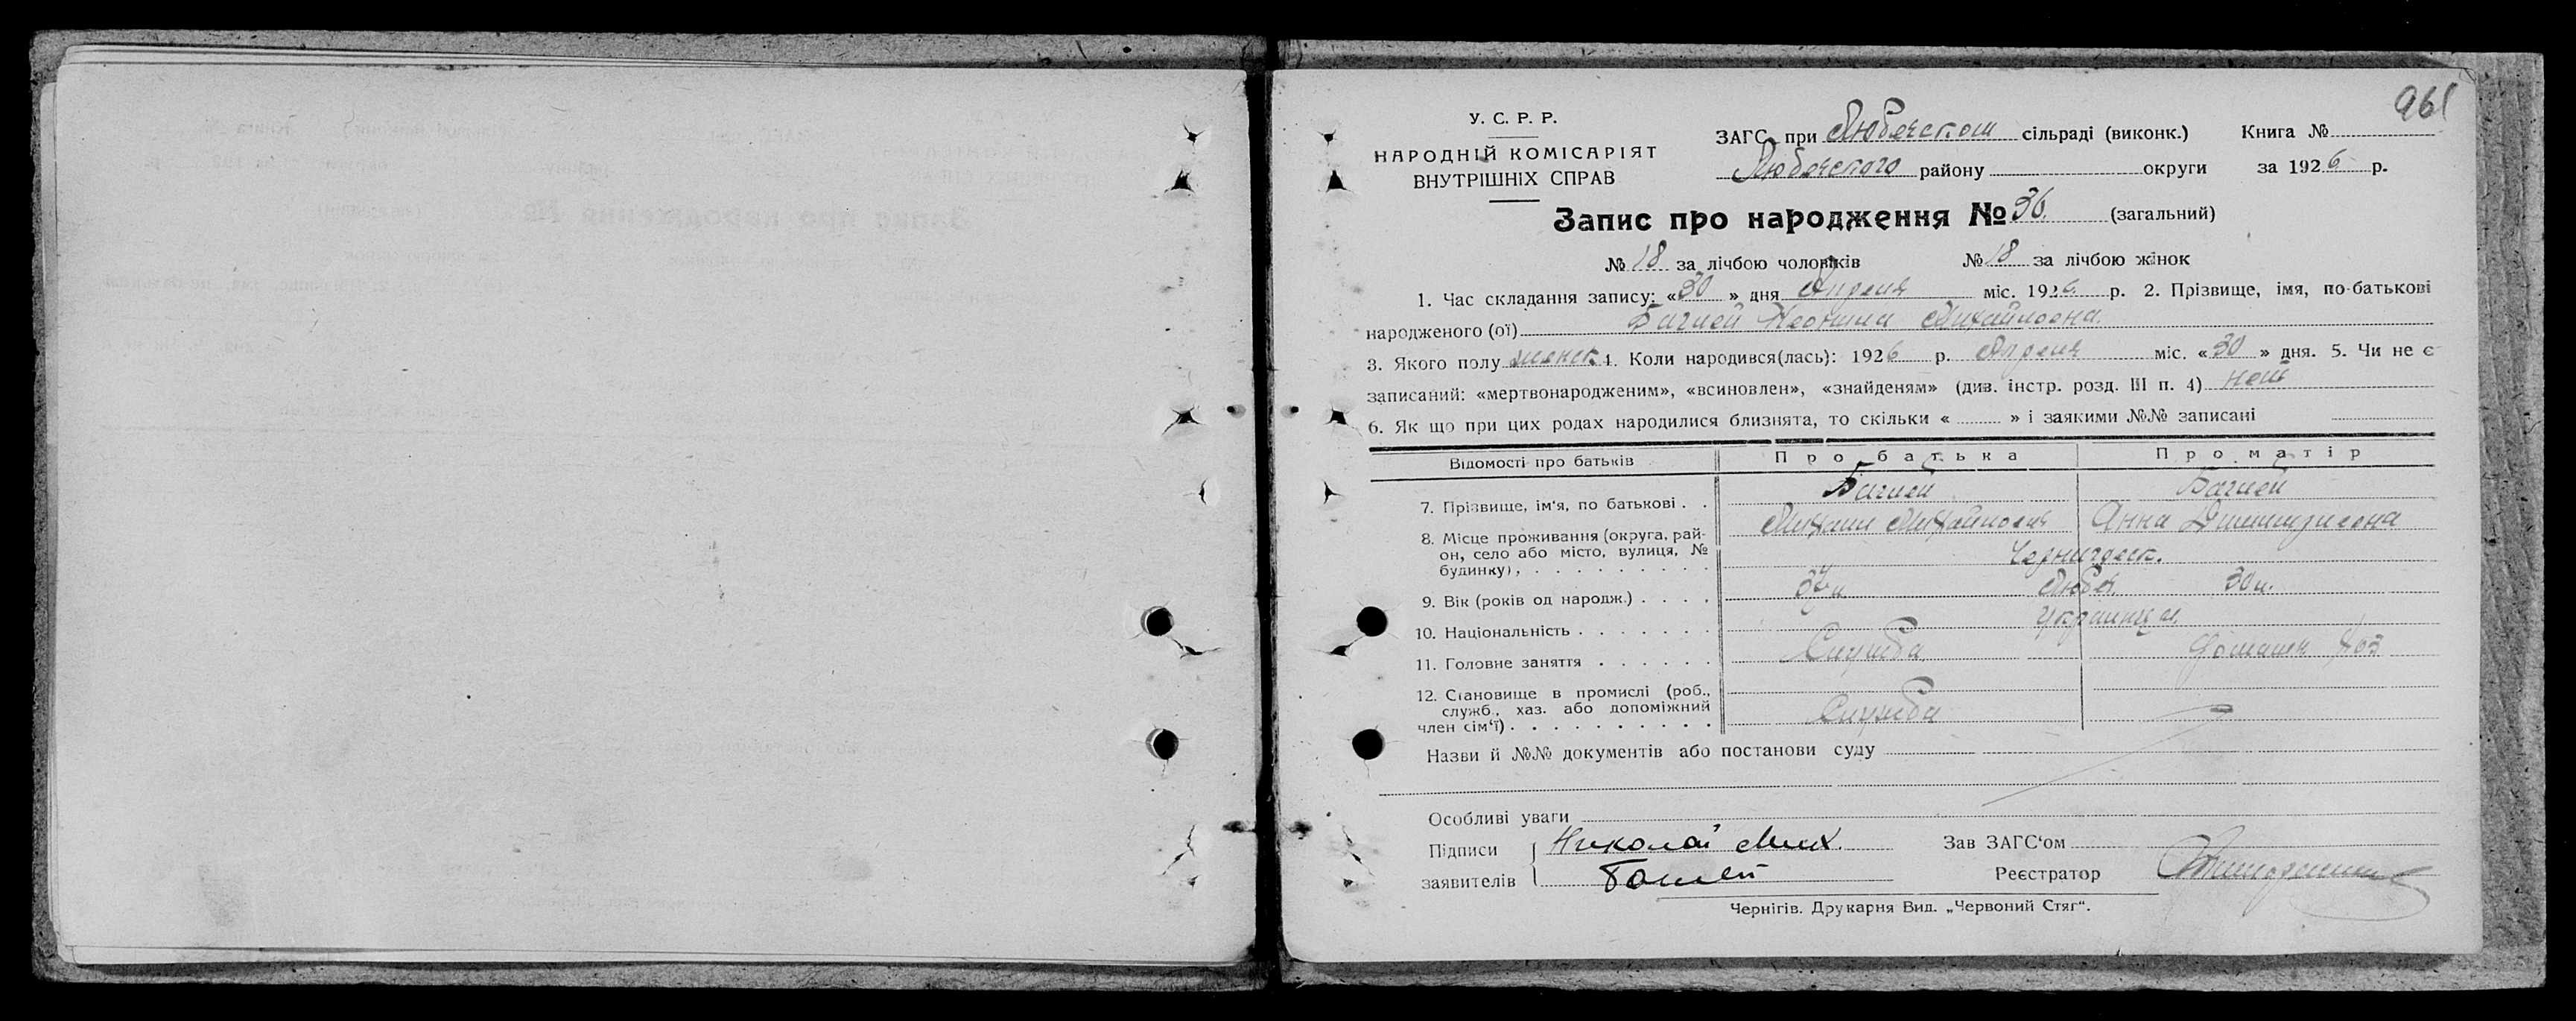 961
У. С. Р. Р.
НАРОДНІЙ КОМІСАРІЯТ
ВНУТРІШНІХ СПРАВ
ЗАГС при Любечском сільраді (виконк.) Книга №
Любечского району округи за 1926 р.
Запис про народження № 36. (загальний)
№ 18 за лічбою чоловіків № 18 за лічбою жінок
1. Час складання запису: «30» дня Апреля міс. 1926 р. 2. Прізвище, імя, по-батькові
народженого (ої) Михайловна.
3. Якого полу женск 4. Коли народився(лась): 1926 р. Апреля міс. «30» дня. 5. Чи не є
записаний: «мертвонародженим», «всиновлен», «знайденям» (див. інстр. розд. III п. 4) нет
6. Як що при цих родах народилися близнята, то скільки « » і заякими №№ записані
Відомості про батьків Про батька Про матір
7. Прізвище, ім'я, по батькові . .
Михаил Михайлович Анна Дмитриевна
8. Місце проживання (округа, рай-
он, село або місто, вулиця, №
будинку), Черниговск.
Любеч.
9. Вік (років од народж.) . . . . 30 л.
10. Національність . . . . . . . Украинцы.
11. Головне заняття . . . . . . Служба Домашн хоз
12. Становище в промислі (роб.,
служб., хаз. або допоміжний
член сім'ї) . . . . . . . . . . Служба
Назви й №№ документів або постанови суду
Особливі уваги
Підписи Николай Мих. Зав ЗАГС'ом
заявителів Реєстратор
Чернігів. Друкарня Вид. „Червоний Стяг“.